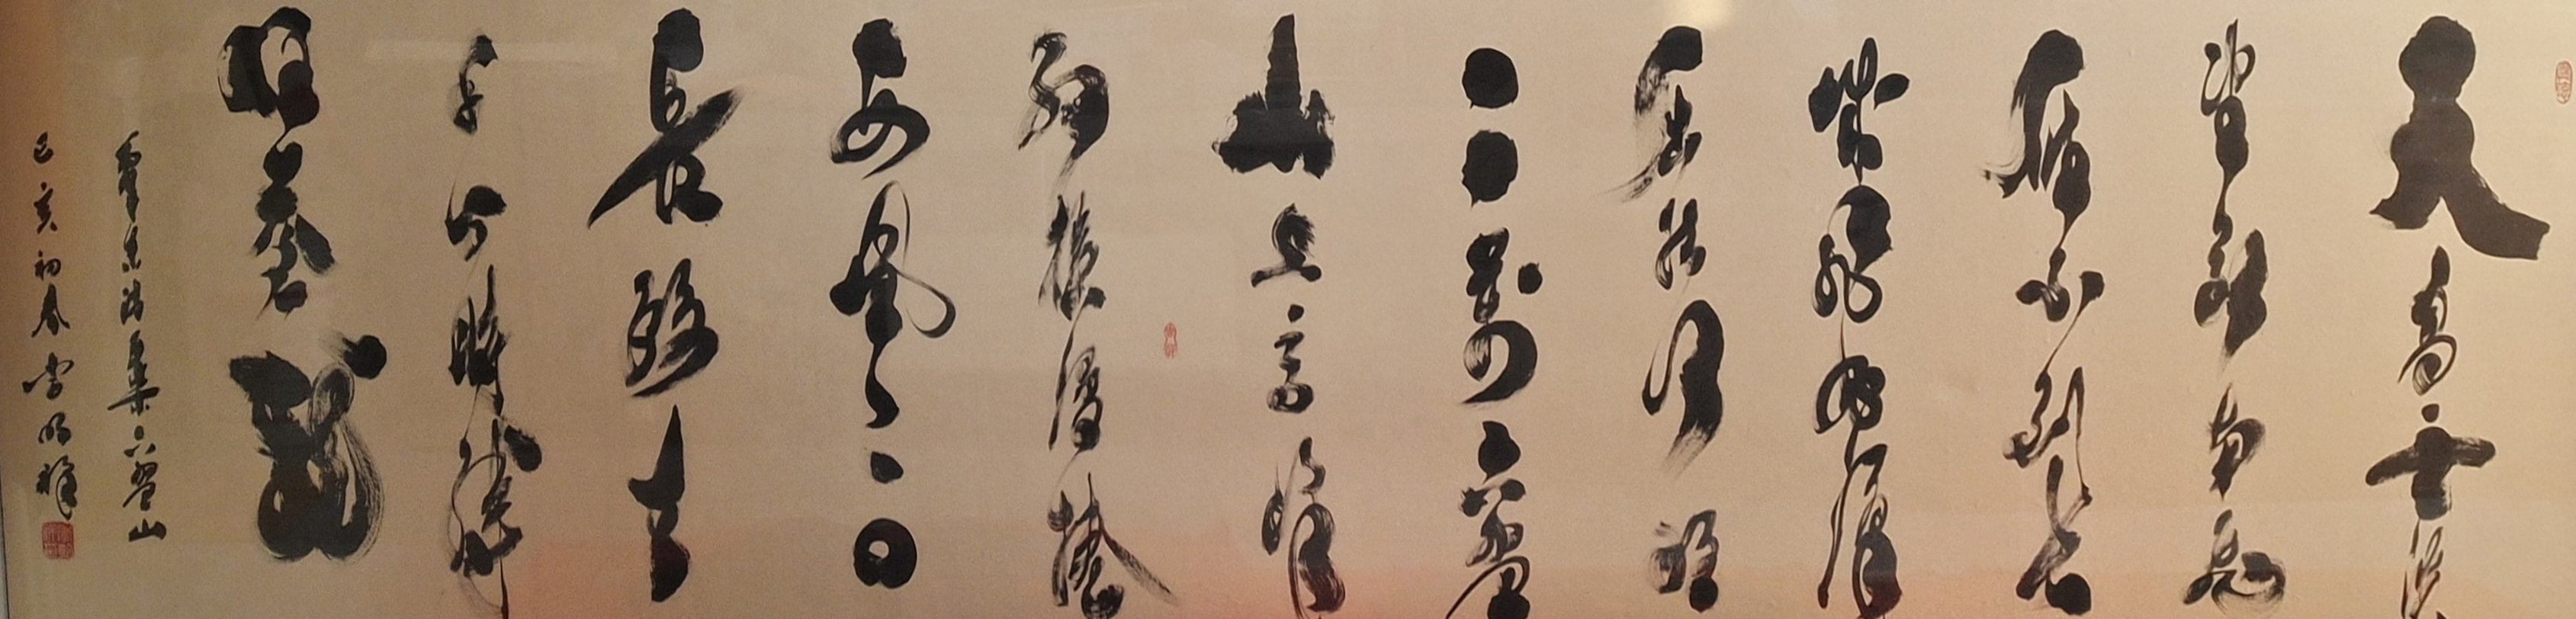 天高雲淡
望斷南飛
雁不到長
城非好漢
屈指行程
二萬六盤
山上高峰
紅旗漫捲
西風今日
長纓在
手何時縛
住蒼龍
六盤山
己亥初春